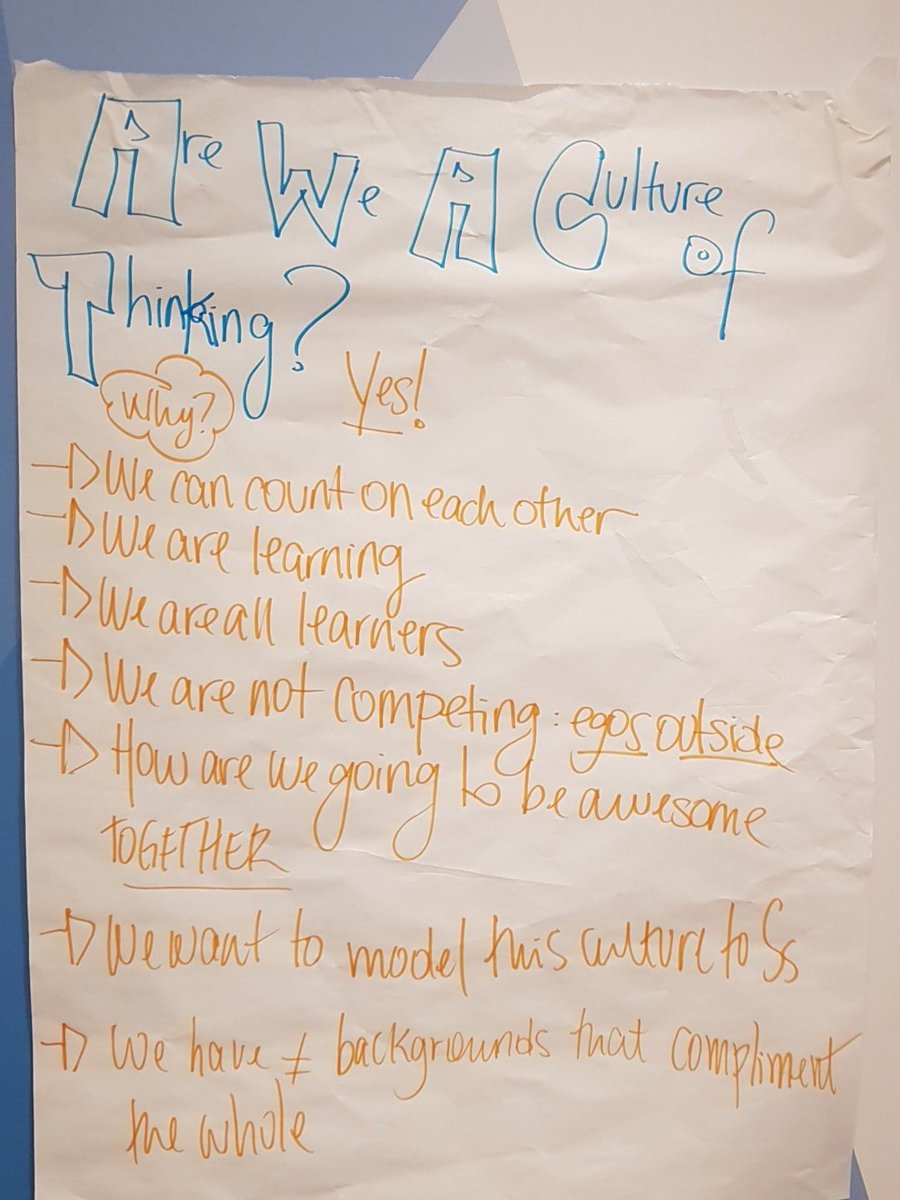 Are We A Culture of
Thinking?
Why? Yes!
→ We can count on each other
→ We are learning
→ We are all learners
→ We are not competing: egos outside
→ How are we going to be awesome
TOGETHER
→ We want to model this culture to Ss
→ We have ≠ backgrounds that compliment
the whole